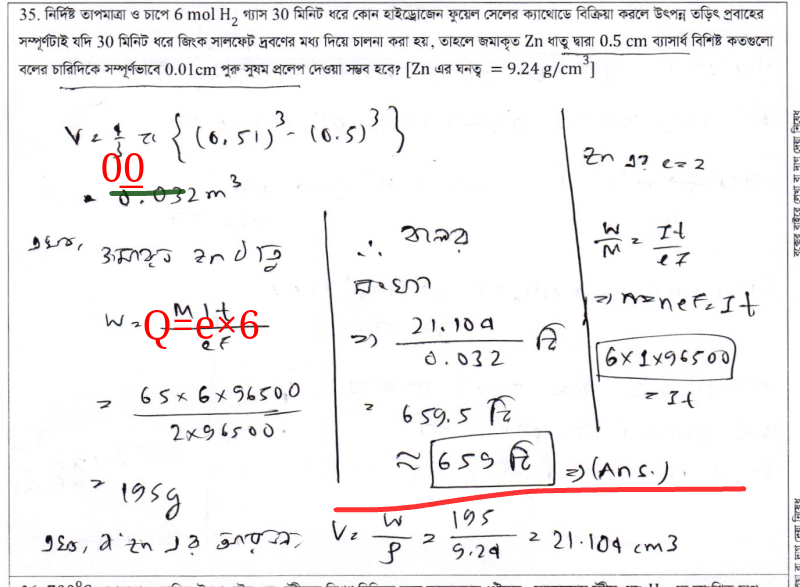 35. নির্দিষ্ট তাপমাত্রা ও চাপে 6 mol H₂ গ্যাস 30 মিনিট ধরে কোন হাইড্রোজেন ফুয়েল সেলের ক্যাথোডে বিক্রিয়া করলে উৎপন্ন তড়িৎ প্রবাহের
সম্পূর্ণটাই যদি 30 মিনিট ধরে জিংক সালফেট দ্রবণের মধ্য দিয়ে চালনা করা হয়, তাহলে জমাকৃত Zn ধাতু দ্বারা 0.5 cm ব্যাসার্ধ বিশিষ্ট কতগুলো
বলের চারিদিকে সম্পূর্ণভাবে 0.01cm পুরু সুষম প্রলেপ দেওয়া সম্ভব হবে? [Zn এর ঘনত্ব = 9.24 g/cm³]
V = 4/3 π {(0.51)³ - (0.5)³}
00
= 0.032 m³
এখন, জমাকৃত Zn ধাতু
W = MIt/eF
Q=e×6
= 65 × 6 × 96500 / 2 × 96500
= 195g
∴ বলের
সংখ্যা
=> 21.104 / 0.032 টি
= 659.5 টি
≈ 659 টি => (Ans.)
Zn এর e = 2
W/M = It/eF
=> neF = It
6 × 1 × 96500
= It
এখন, Zn এর আয়তন, V = W/ρ = 195/9.24 = 21.104 cm3